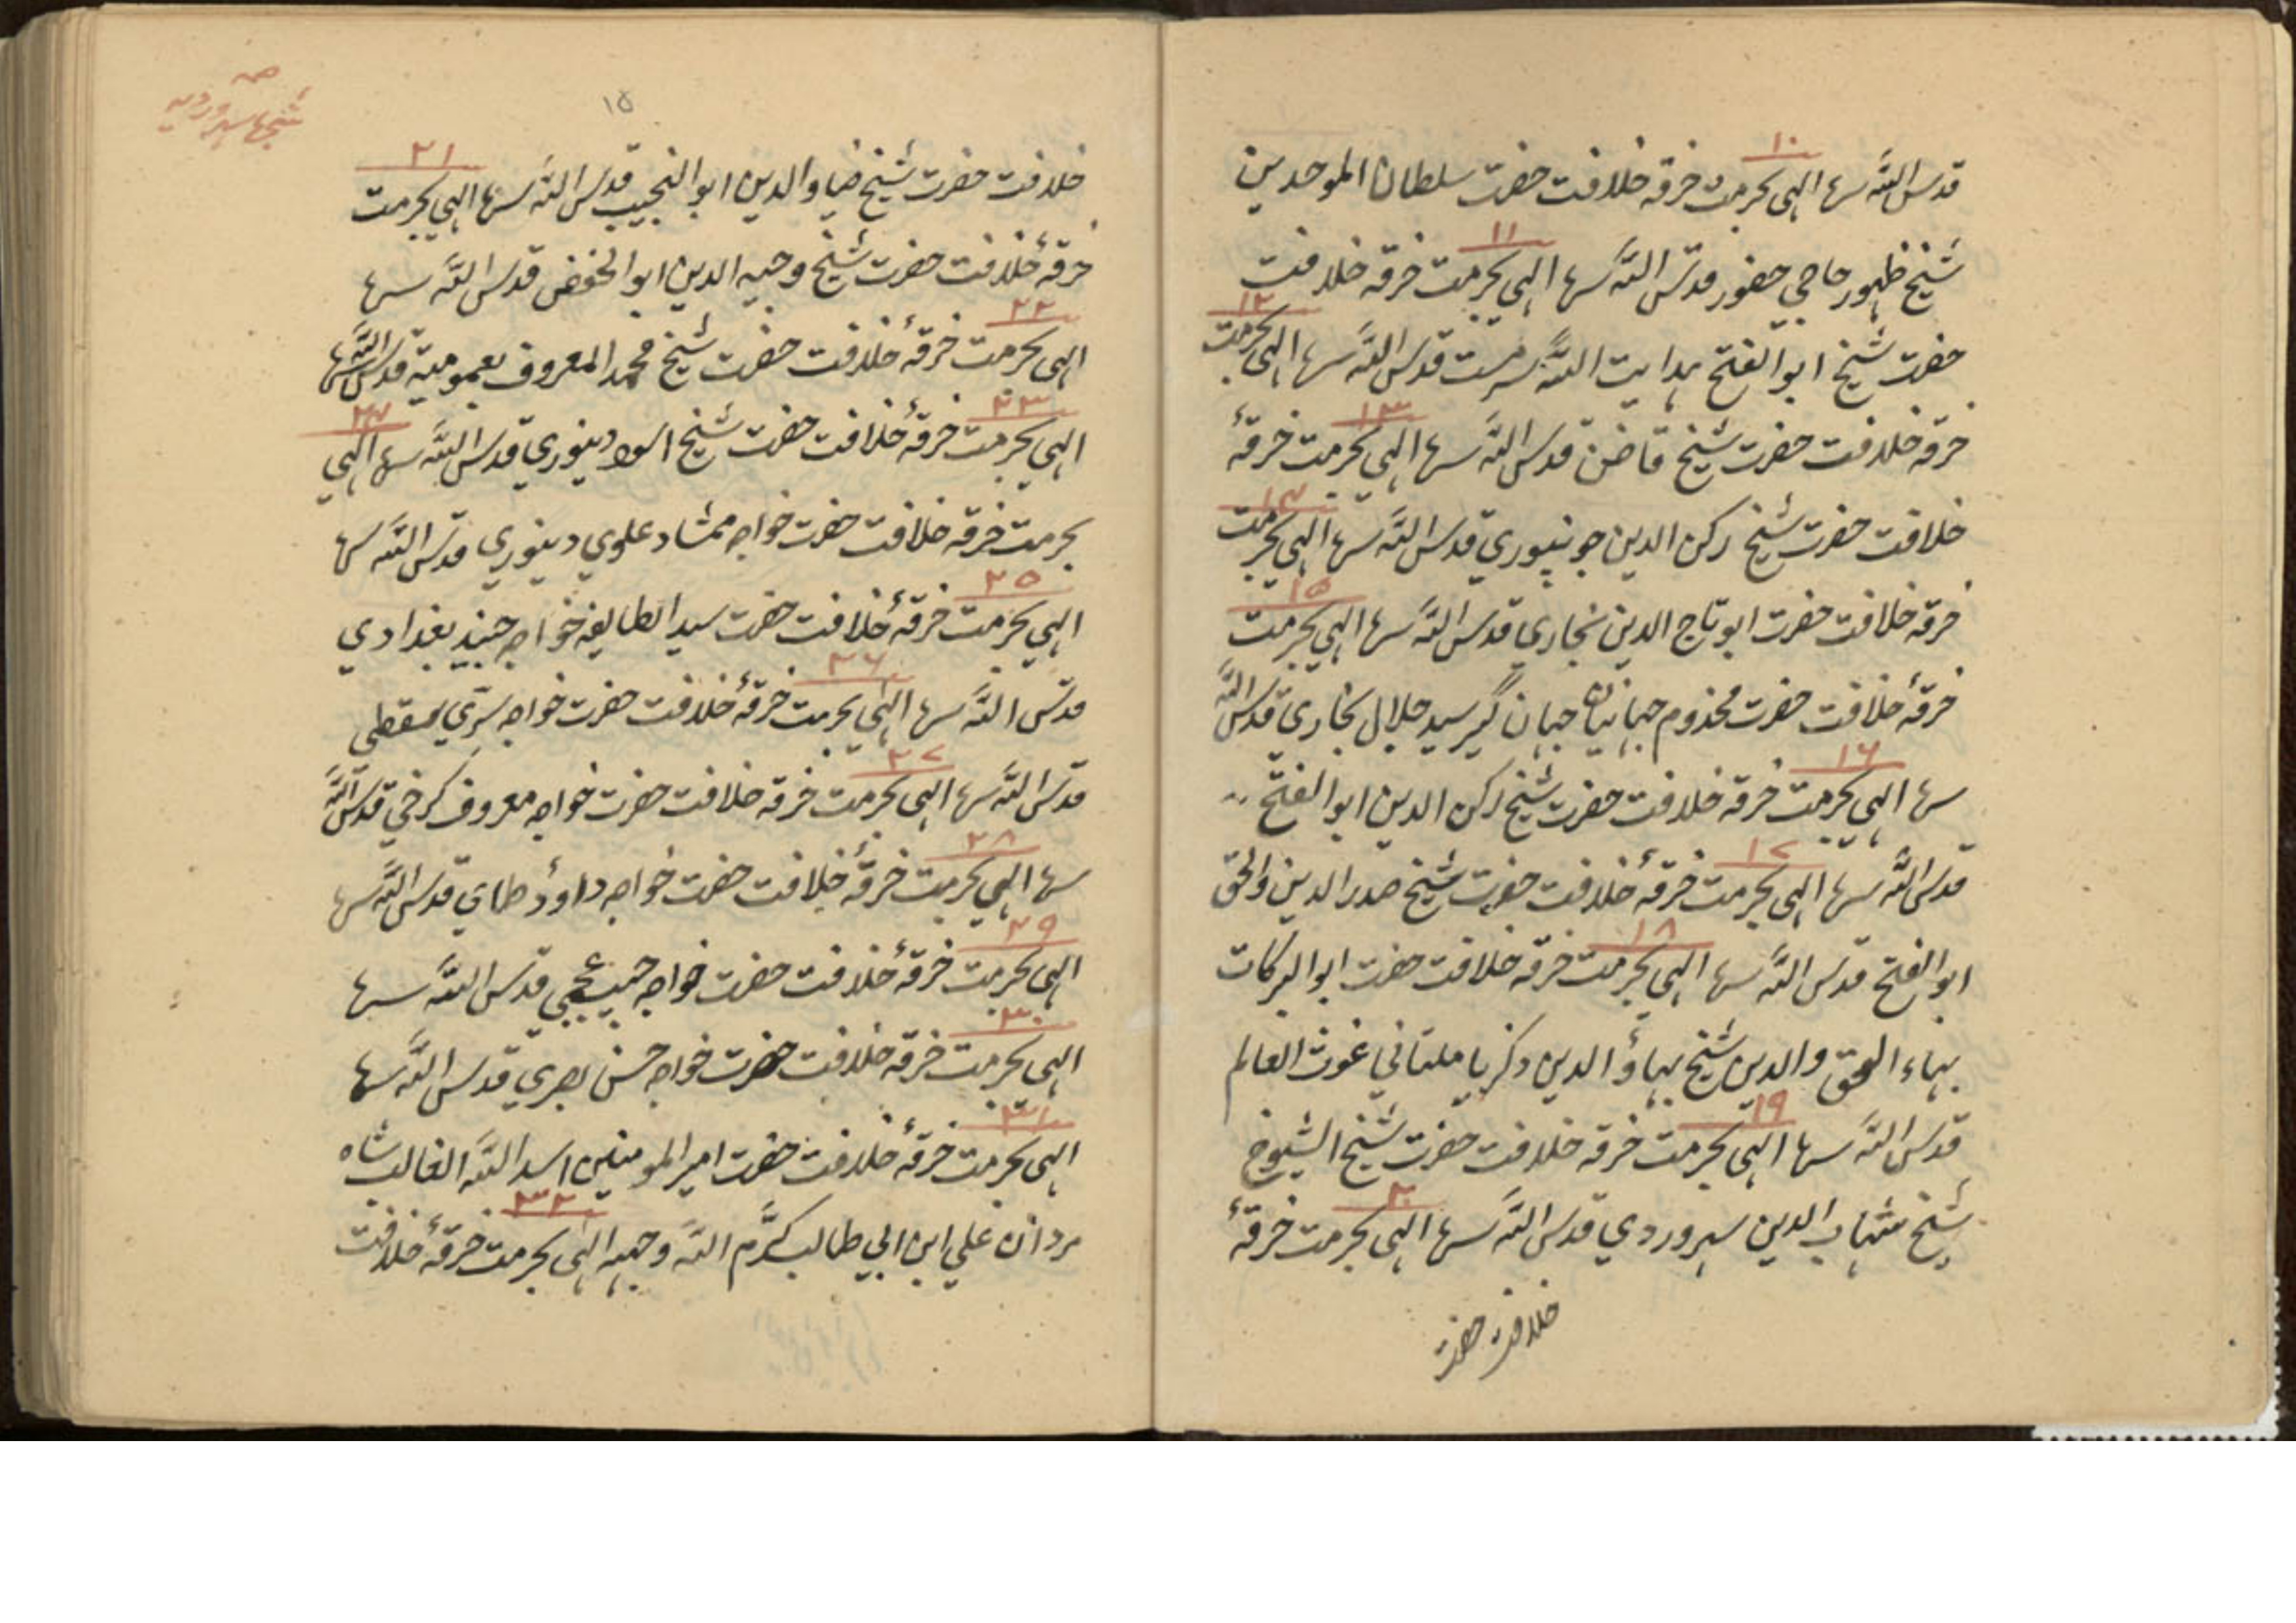 ۱۰
قدس اللّٰه سرها الهی بحرمت خرقه خلافت حضرت سلطان الموحدین
۱۱
شیخ ظهور حاجي حضور قدس اللّٰه سرها الهي بحرمت خرقه خلافت
۱۲
حضرت شیخ ابو الفتح هدایت اللّٰه سرمست قدس اللّٰه سرها الهي بحرمت
۱۳
خرقه خلافت حضرت شیخ قاضن قدس اللّٰه سرها الهي بحرمت خرقهٔ
۱۴
خلافت حضرت شیخ رکن الدین جونپوري قدس اللّٰه سرها الهي بحرمت
۱۵
خرقه خلافت حضرت ابو تاج الدین بخاري قدس اللّٰه سرها الهي بحرمت
خرقهٔ خلافت حضرت مخذوم جهانیان جهان گیر سید جلال بخاري قدس اللّٰه
۱۶
سرها الهي بحرمت خرقه خلافت حضرت شیخ رکن الدین ابو الفتح
۱۷
قدس اللّٰه سرها الهی بحرمت خرقهٔ خلافت حضرت شیخ صدر الدین والحق
۱۸
ابو الفتح قدس اللّٰه سرها الهي بحرمت خرقه خلافت حضرت ابو البرکات
بهاء الحق والدین شیخ بهاؤ الدین ذکریا ملتاني غوث العالم
۱۹
قدس اللّٰه سرها الهي بحرمت خرقه خلافت حضرت شیخ الشیوخ
۲۰
شیخ شهاب الدین سهروردي قدس اللّٰه سرها الهی بحرمت خرقهٔ
خلافت حضرت
سهروردیه
۱۵
۲۱
خلافت حضرت شیخ ضیاو الدین ابو النجیب قدس اللّٰه سرها الهي بحرمت
خرقهٔ خلافت حضرت شیخ وجیه الدین ابو الخفض قدس اللّٰه سرها
۲۲
الهي بحرمت خرقهٔ خلافت حضرت شیخ محمد المعروف بعمومیة قدس اللّٰه سرها
۲۳ ۲۴
الهي بحرمت خرقهٔ خلافت حضرت شیخ اسود دینوري قدس اللّٰه سرها الهي
بحرمت خرقه خلافت حضرت خواجه ممشاد علوي دینوري قدس اللّٰه سرها
۲۵
الهي بحرمت خرقهٔ خلافت حضرت سید الطایفه خواجه جنید بغدادي
۲۶
قدس اللّٰه سرها الهي بحرمت خرقهٔ خلافت حضرت خواجه سري سقطي
۲۷
قدس اللّٰه سرها الهي بحرمت خرقه خلافت حضرت خواجه معروف کرخي قدس اللّٰه
۲۸
سرها الهي بحرمت خرقهٔ خلافت حضرت خواجه داوٗد طاي قدس اللّٰه سرها
۲۹
الهي بحرمت خرقهٔ خلافت حضرت خواجه حبیب عجمي قدس اللّٰه سرها
۳۰
الهي بحرمت خرقه خلافت حضرت خواجه حسن بصري قدس اللّٰه سرها
۳۱
الهي بحرمت خرقهٔ خلافت حضرت امیر المومنین اسد اللّٰه الغالب شاه
۳۲
مردان علي ابن ابي طالب کرّم اللّٰه وجهه الهي بحرمت خرقهٔ خلافت